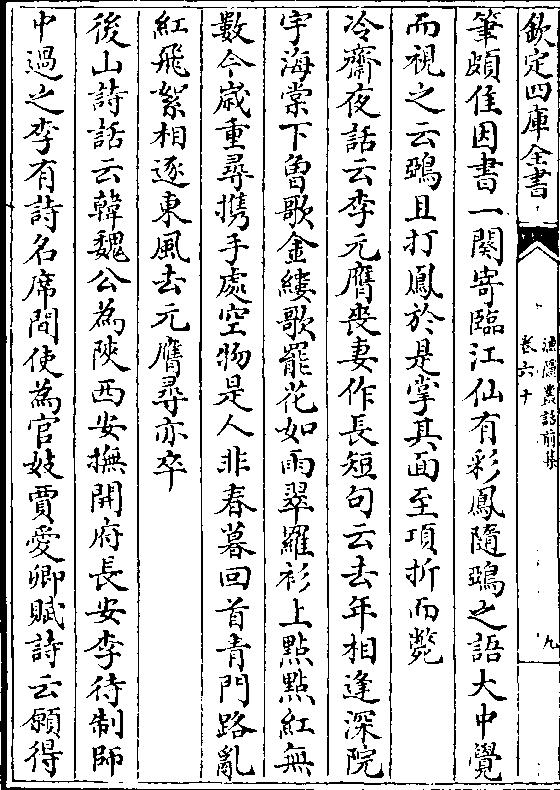 欽定四庫全書
漁隱叢話前集
卷六十
九
筆頗佳因書一闋寄臨江仙有彩鳳隨鵶之語大中覺
而視之云鵶且打鳳於是掌其面至項折而斃
冷齋夜話云李元膺喪妻作長短句云去年相逢深院
宇海棠下曽歌金縷歌罷花如雨翠羅衫上㸃㸃紅無
數今嵗重尋攜手處空物是人非春暮回首青門路亂
紅飛絮相逐東風去元膺尋亦卒
後山詩話云韓魏公為陜西安撫開府長安李待制師
中過之李有詩名席間使為官妓賈愛卿賦詩云願得